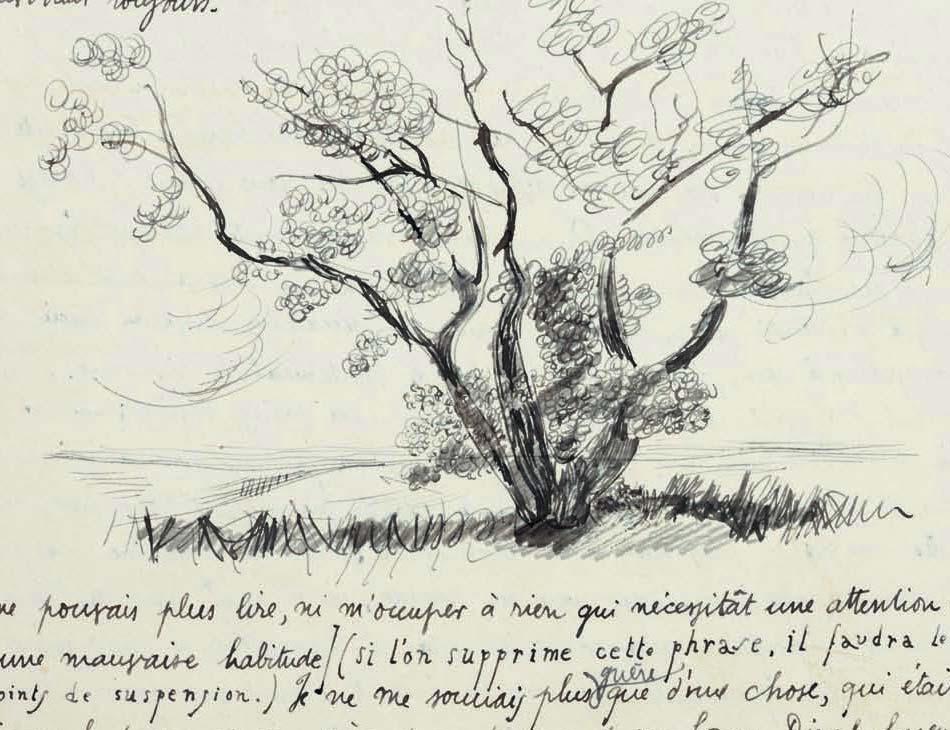 toujours.
ne pouvais plus lire, ni m'occuper à rien qui nécessitât une attention
une mauvaise habitude] (si l'on supprime cette phrase, il faudra le
points de suspension.) Je ne me souciais plus
guère
que d'une chose, qui étai